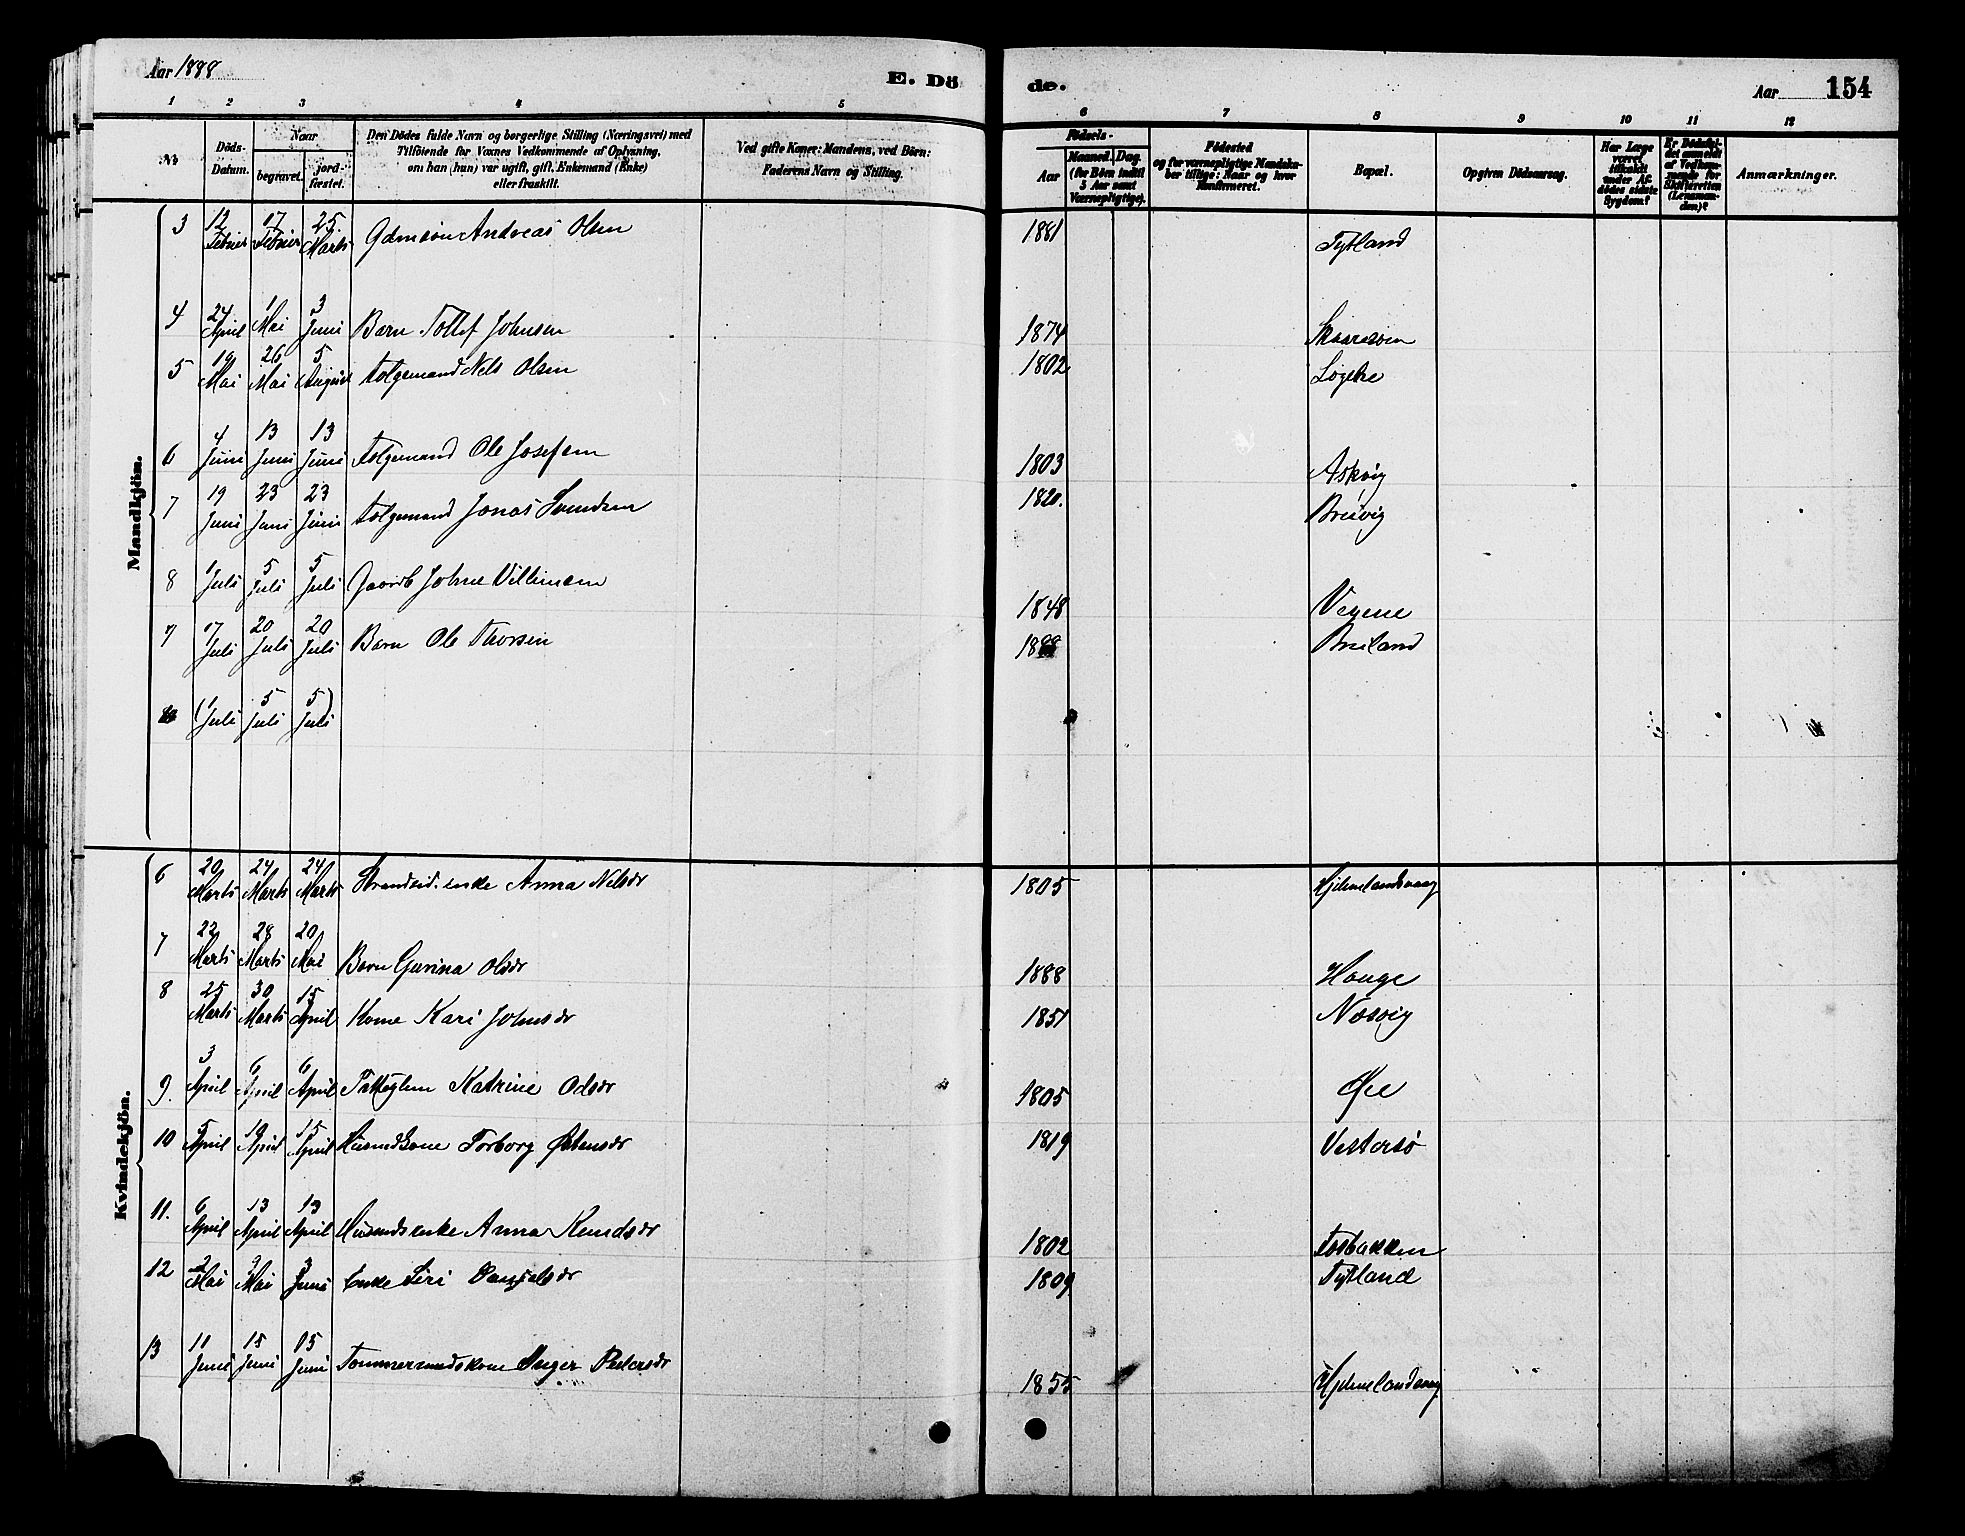 Aar 1888
E. Dö
de.
Aar 154
1 2 3 4 5
6 7 8 9 10 11 12
No
Döds-Datum.
Naar
begravet.
jord-fæstet.
Den Dödes fulde Navn og borgerlige Stilling (Næringsvei) med
Tilföiende for Voxnes Vedkommende af Oplysning,
om han (hun) var ugift, gift, Enkemand (Enke)
eller fraskilt.
Ved gifte Koner: Mandens, ved Börn:
Faderens Navn og Stilling.
Födsels-
Aar
Maaned. Dag.
(for Börn indtil
5 Aar samt
Værnepligtige).
Födested
og for værnepligtige Mandska-
ber tillige: Naar og hvor
konfirmeret.
Bopæl.
Opgiven Dödsaarsag.
Har Læge
været
tilkaldt
under Af-
dödes sidste
Sygdom?
Er Dödsfal-
det anmeldt
af Vedkom-
mende for
Skifteretten
(Lensman-
den)?
Anmærkninger.
Mandkjön.
3 12 Februar 17 Februar 25 Marts Andreas Olsen 1881 Tytland
4 24 April 1 Mai 3 Juni Barn Tollef Johnsen 1874
5 19 Mai 26 Mai 5 August Folgemand Nels Olsen 1802
6 4 Juni 13 Juni 13 Juni Folgemand Ole Josefsen 1803 Askvig
7 19 Juni 23 Juni 23 Juni Folgemand Jonas Svendsen 1820. Breivig
8 1 Juli 5 Juli 5 Juli Johne Villumsen 1848
9 17 Juli 20 Juli 20 Juli Barn Ole Thorsen 1888 Breiland
(1 Juli 5 Juli 5 Juli)
Kvindekjön.
6 20 Marts 24 Marts 24 Marts Strandsid.enke Anna Nelsdr 1805 Hjelmelandsvaag
7 22 Marts 28 Marts 20 Mai Barn Gurina Olsdr 1888 Hauge
8 25 Marts 30 Marts 15 April Kone Kari Johnsdr 1851 Næsvig
9. 3 April 6 April 6 April Katrine Odsdr 1805
10 5 April 10 April 15 April Husmdskone Torborg Østensdr 1819 Vestersö
11. 6 April 13 April 13 April Husmandsenke Anna Knudsdr 1802 Fosbakken
12 2 Mai 3 Mai 3 Juni Enke Siri Danielsdr 1809 Tytland
13 11 Juni 15 Juni 15 Juni Tommermndskone Inger Pedersdr 1855 Hjelmelandsvaag